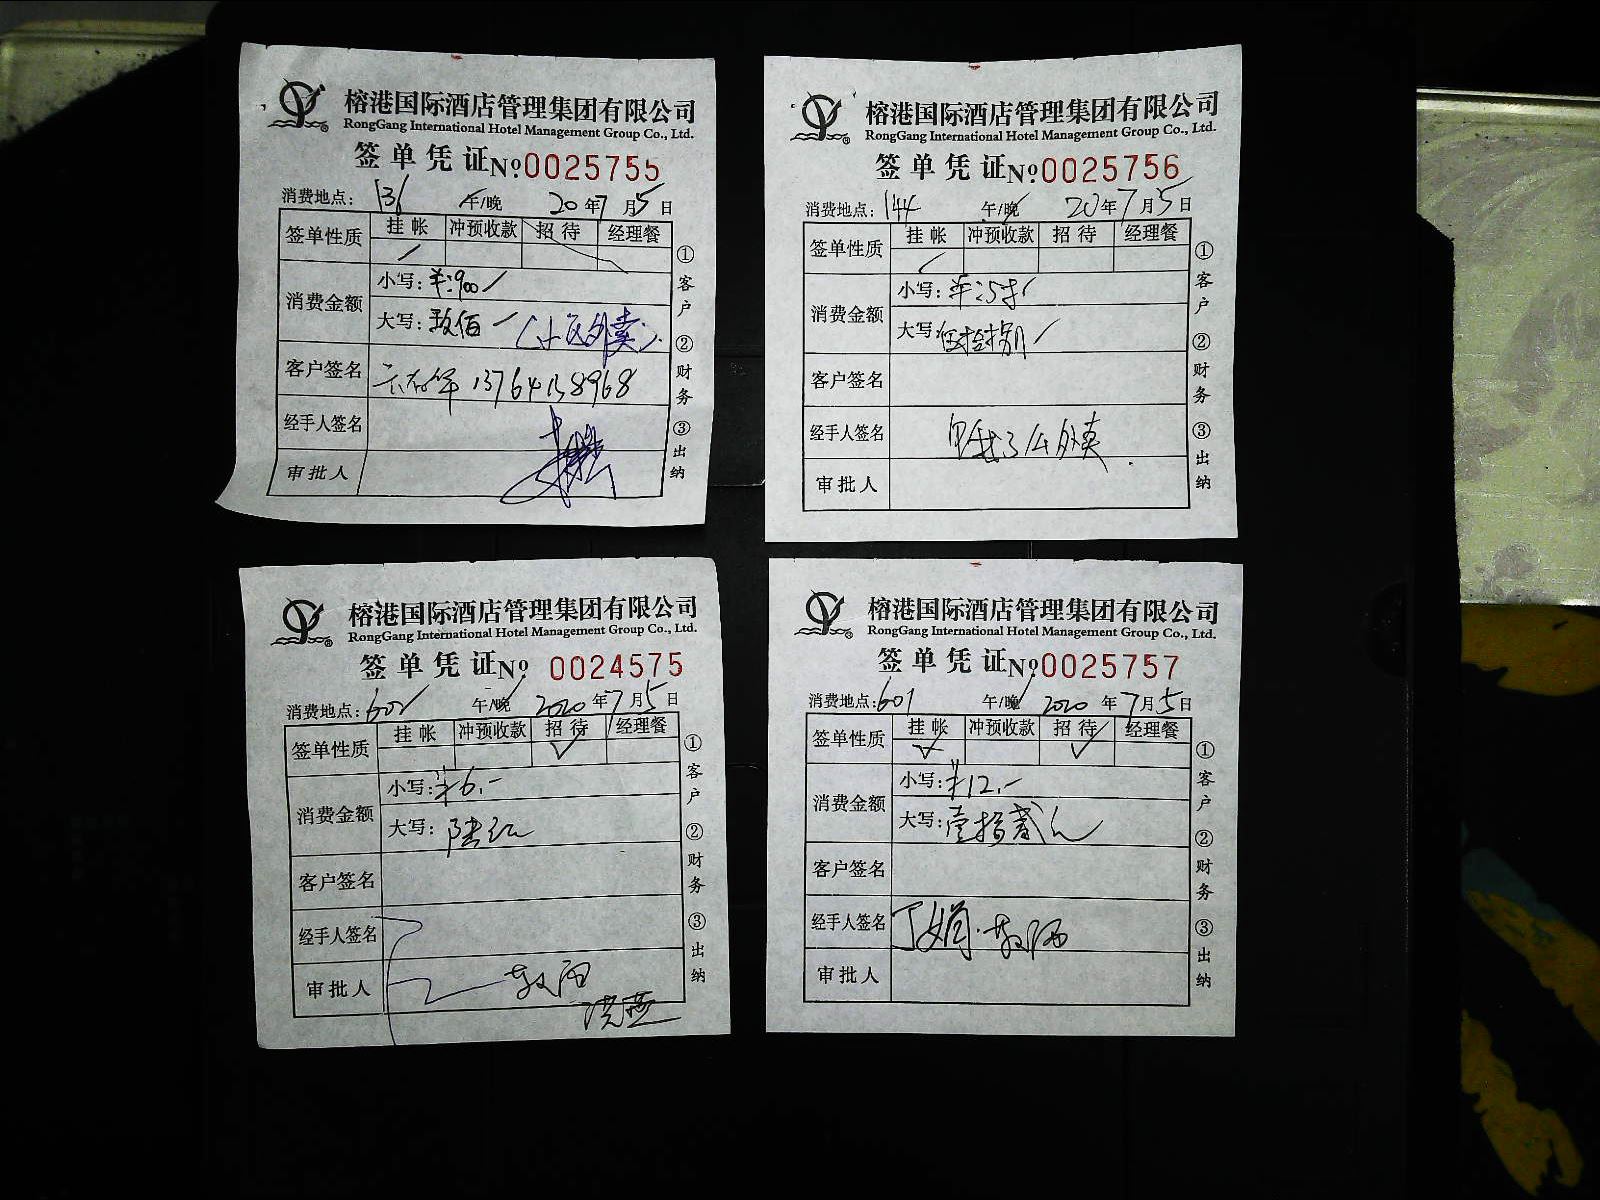 榕港国际酒店管理集团有限公司
RongGang International Hotel Management Group Co., Ltd.
签单凭证 No 0025755
消费地点: 136 午/晚 20年7月5日
签单性质 挂帐 冲预收款 招待 经理餐
消费金额 小写: ¥:900
大写: 玖佰 (小区外卖)
客户签名 13764158968
经手人签名
审批人
①客户 ②财务 ③出纳
榕港国际酒店管理集团有限公司
RongGang International Hotel Management Group Co., Ltd.
签单凭证 No 0025756
消费地点: 144 午/晚 20年7月5日
签单性质 挂帐 冲预收款 招待 经理餐
消费金额 小写: ¥:58
大写: 伍拾捌
客户签名
经手人签名 饿了么外卖
审批人
①客户 ②财务 ③出纳
榕港国际酒店管理集团有限公司
RongGang International Hotel Management Group Co., Ltd.
签单凭证 No 0024575
消费地点: 602 午/晚 2020年7月5日
签单性质 挂帐 冲预收款 招待 经理餐
消费金额 小写: ¥6.-
大写: 陆元
客户签名
经手人签名
审批人
洪燕
①客户 ②财务 ③出纳
榕港国际酒店管理集团有限公司
RongGang International Hotel Management Group Co., Ltd.
签单凭证 No 0025757
消费地点: 601 午/晚 2020年7月5日
签单性质 挂帐 冲预收款 招待 经理餐
消费金额 小写: ¥12.-
大写: 壹拾贰元
客户签名
经手人签名 丁娟
审批人
①客户 ②财务 ③出纳